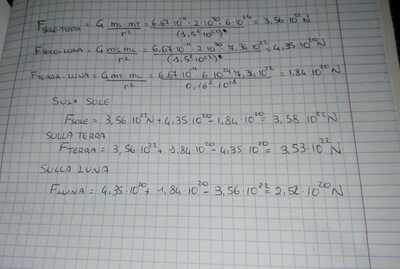 F SOLE-TERRA = G ms mt / r² = 6,67·10¹¹·2·10³⁰·6·10²⁴ / (1,5²·10²²)* = 3,56·10²²N
F SOLE-LUNA = G ms mL / r² = 6,67·10¹¹·2·10³⁰·7,36·10²² / (1,5²·10²²)* = 4,35·10²⁰N
F TERRA-LUNA = G mt mL / r² = 6,67·10¹¹·6·10²⁴·7,36·10²² / 0,16²·10¹⁸ = 1,84·10²⁰N
SULA SOLE
F SOLE = 3,56·10²²N + 4,35·10²⁰ - 1,84·10²⁰ = 3,58·10²²N
SULLA TERRA
F TERRA = 3,56·10²² + 1,84·10²⁰ - 4,35·10²⁰ = 3,53·10²²N
SULLA LUNA
F LUNA = 4,35·10²⁰ + 1,84·10²⁰ - 3,56·10²² = 2,52·10²⁰N